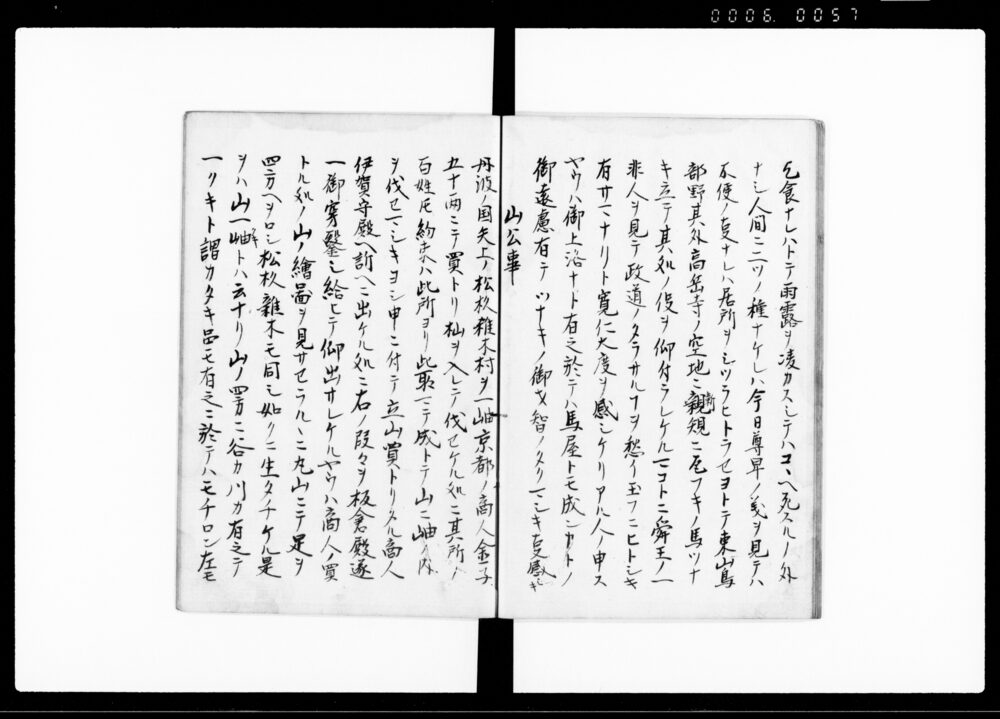 0006. 0057
乞食ナレハトテ雨露ヲ凌カスシテハコヽヘ死スルノ外
ナシ人間ニ二ツノ種ナケレハ今日尊卑ノ義ヲ見テハ
不便ノ叓ナレハ居所ヲシツラヒトラセヨトテ東山鳥
部野其外高岳寺ノ空地ニ新規ニ尾フキノ馬ツナ
キ立テ其処ノ役ヲ仰付ラレケルマコトニ舜王ノ一
非人ヲ見テ政道ノクラサルヿヲ愁イ玉フニヒトシキ
有サマナリト寛仁大度ヲ感シケリアル人ノ申ス
ヤウハ御上洛ナト有之於テハ馬屋トモ成ンカトノ
御遠慮有テツナキノ御才智ノ
山公事
丹波ノ国矢上ノ松杦雑木村ヲ一岫京都ノ商人金子
五十両ニテ買トリ杣ヲ入レテ伐セケル処ニ其所ノ
百姓圧約束ハ此所ヨリ此取マテ成トテ山ニ岫ノ内
ヲ伐セマシキヨシ申ニ付テ立山買トリタル商人
伊賀守殿ヘ訴ヘニ出ケル処ニ右ノ段々ヲ板倉殿遂
一御穿鑿シ給ヒテ仰出サレケルヤウハ商人ノ買
トル処ノ山ノ繪圖ヲ見サセラルヽニ丸山ニテ是ヲ
四方ヘヲロシ松杦雜木モ同シ如クニ生タチケル是
ヲハ山一岫トハ云ナリ山ノ四方ニ谷カ川カ有之テ
一リキト謂カタキ品モ有之ニ於テハモチロン左モ